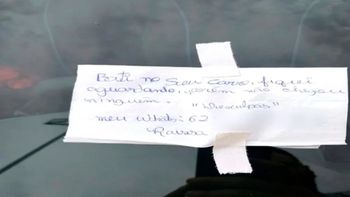 Bati no seu carro, fiquei
aguardando, porem não chegou
ninguem. "Desculpas"
meu whats: 62
Raissa